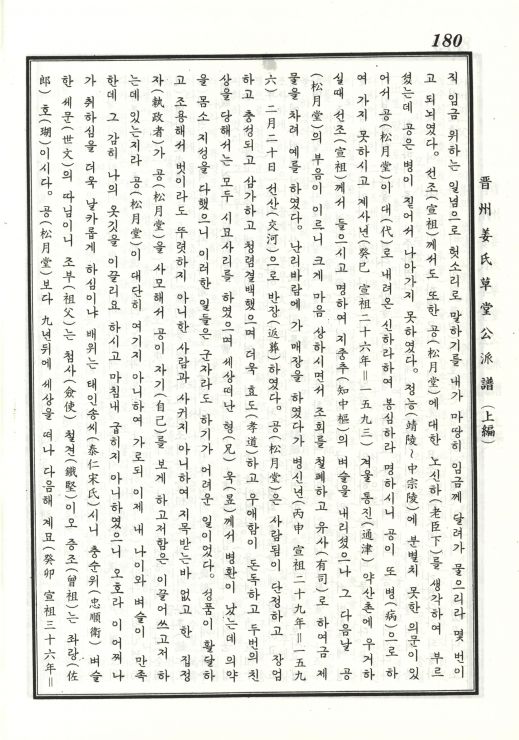 180
晋州姜氏草堂公派譜 (上編)
직 임금 위하는 일념으로 헛소리로 말하기를 내가 마땅히 임금께 달려가 물으리라 몇 번이
고 되뇌였다. 선조(宣祖)께서도 또한 공(松月堂)에 대한 노신하(老臣下)를 생각하여 부르
셨는데 공은 병이 짙어서 나아가지 못하였다. 정능(靖陵~中宗陵)에 분별치 못한 의문이 있
어서 공(松月堂)이 대(代)로 내려온 신하라하여 봉심하라 명하시니 공이 또 병(病)으로 하
여 가지 못하시고 계사년(癸巳 宣祖二十六年=一五九三) 겨울 통진(通津) 약산촌에 우거하
실때 선조(宣祖)께서 들으시고 명하여 지중추(知中樞)의 벼슬을 내리셨으나 그 다음날 공
(松月堂)의 부음이 이르니 크게 마음 상하시면서 조회를 철폐하고 유사(有司)로 하여금 제
물을 차려 예를 하였다. 난리바람에 가매장을 하였다가 병신년(丙申 宣祖二十九年=一五九
六) 二月二十日 선산(交河)으로 반장(返葬)하였다. 공(松月堂)은 사람됨이 단정하고 장엄
하고 충성되고 삼가하고 청렴결백했으며 더욱 효도(孝道)하고 우애함이 돈독하고 두번의 친
상을 당해서는 모두 시묘사리를 하였으며 세상떠난 형(兄) 욱(昱)께서 병환이 났는데 의약
을 몸소 지성을 다했으니 이러한 일들은 군자라도 하기가 어려운 일이었다. 성품이 활달하
고 조용해서 벗이라도 뚜렷하지 아니한 사람과 사커지 아니하여 지목받는바 없고 한 집정
자(執政者)가 공(松月堂)을 사모해서 공이 자기(自己)를 보게 하고저함은 이끌어쓰고저 하
는데 있는지라 공(松月堂)이 대단히 여기지 아니하여 가로되 이제 내 나이와 벼슬이 만족
한데 그 감히 나의 옷깃을 이끌리요 하시고 마침내 굽히지 아니하였으니 오호라 이어찌 나
가 취하심을 더욱 날카롭게 하심이냐 배위는 태인송씨(泰仁宋氏)시니 충순위(忠順衛) 벼슬
한 세문(世文)의 따님이니 조부(祖父)는 첨사(僉使) 철견(鐵堅)이오 증조(曾祖)는 좌랑(佐
郎) 호(瑚)이시다. 공(松月堂)보다 九년뒤에 세상을 떠나 다음해 계묘(癸卯 宣祖三十六年=